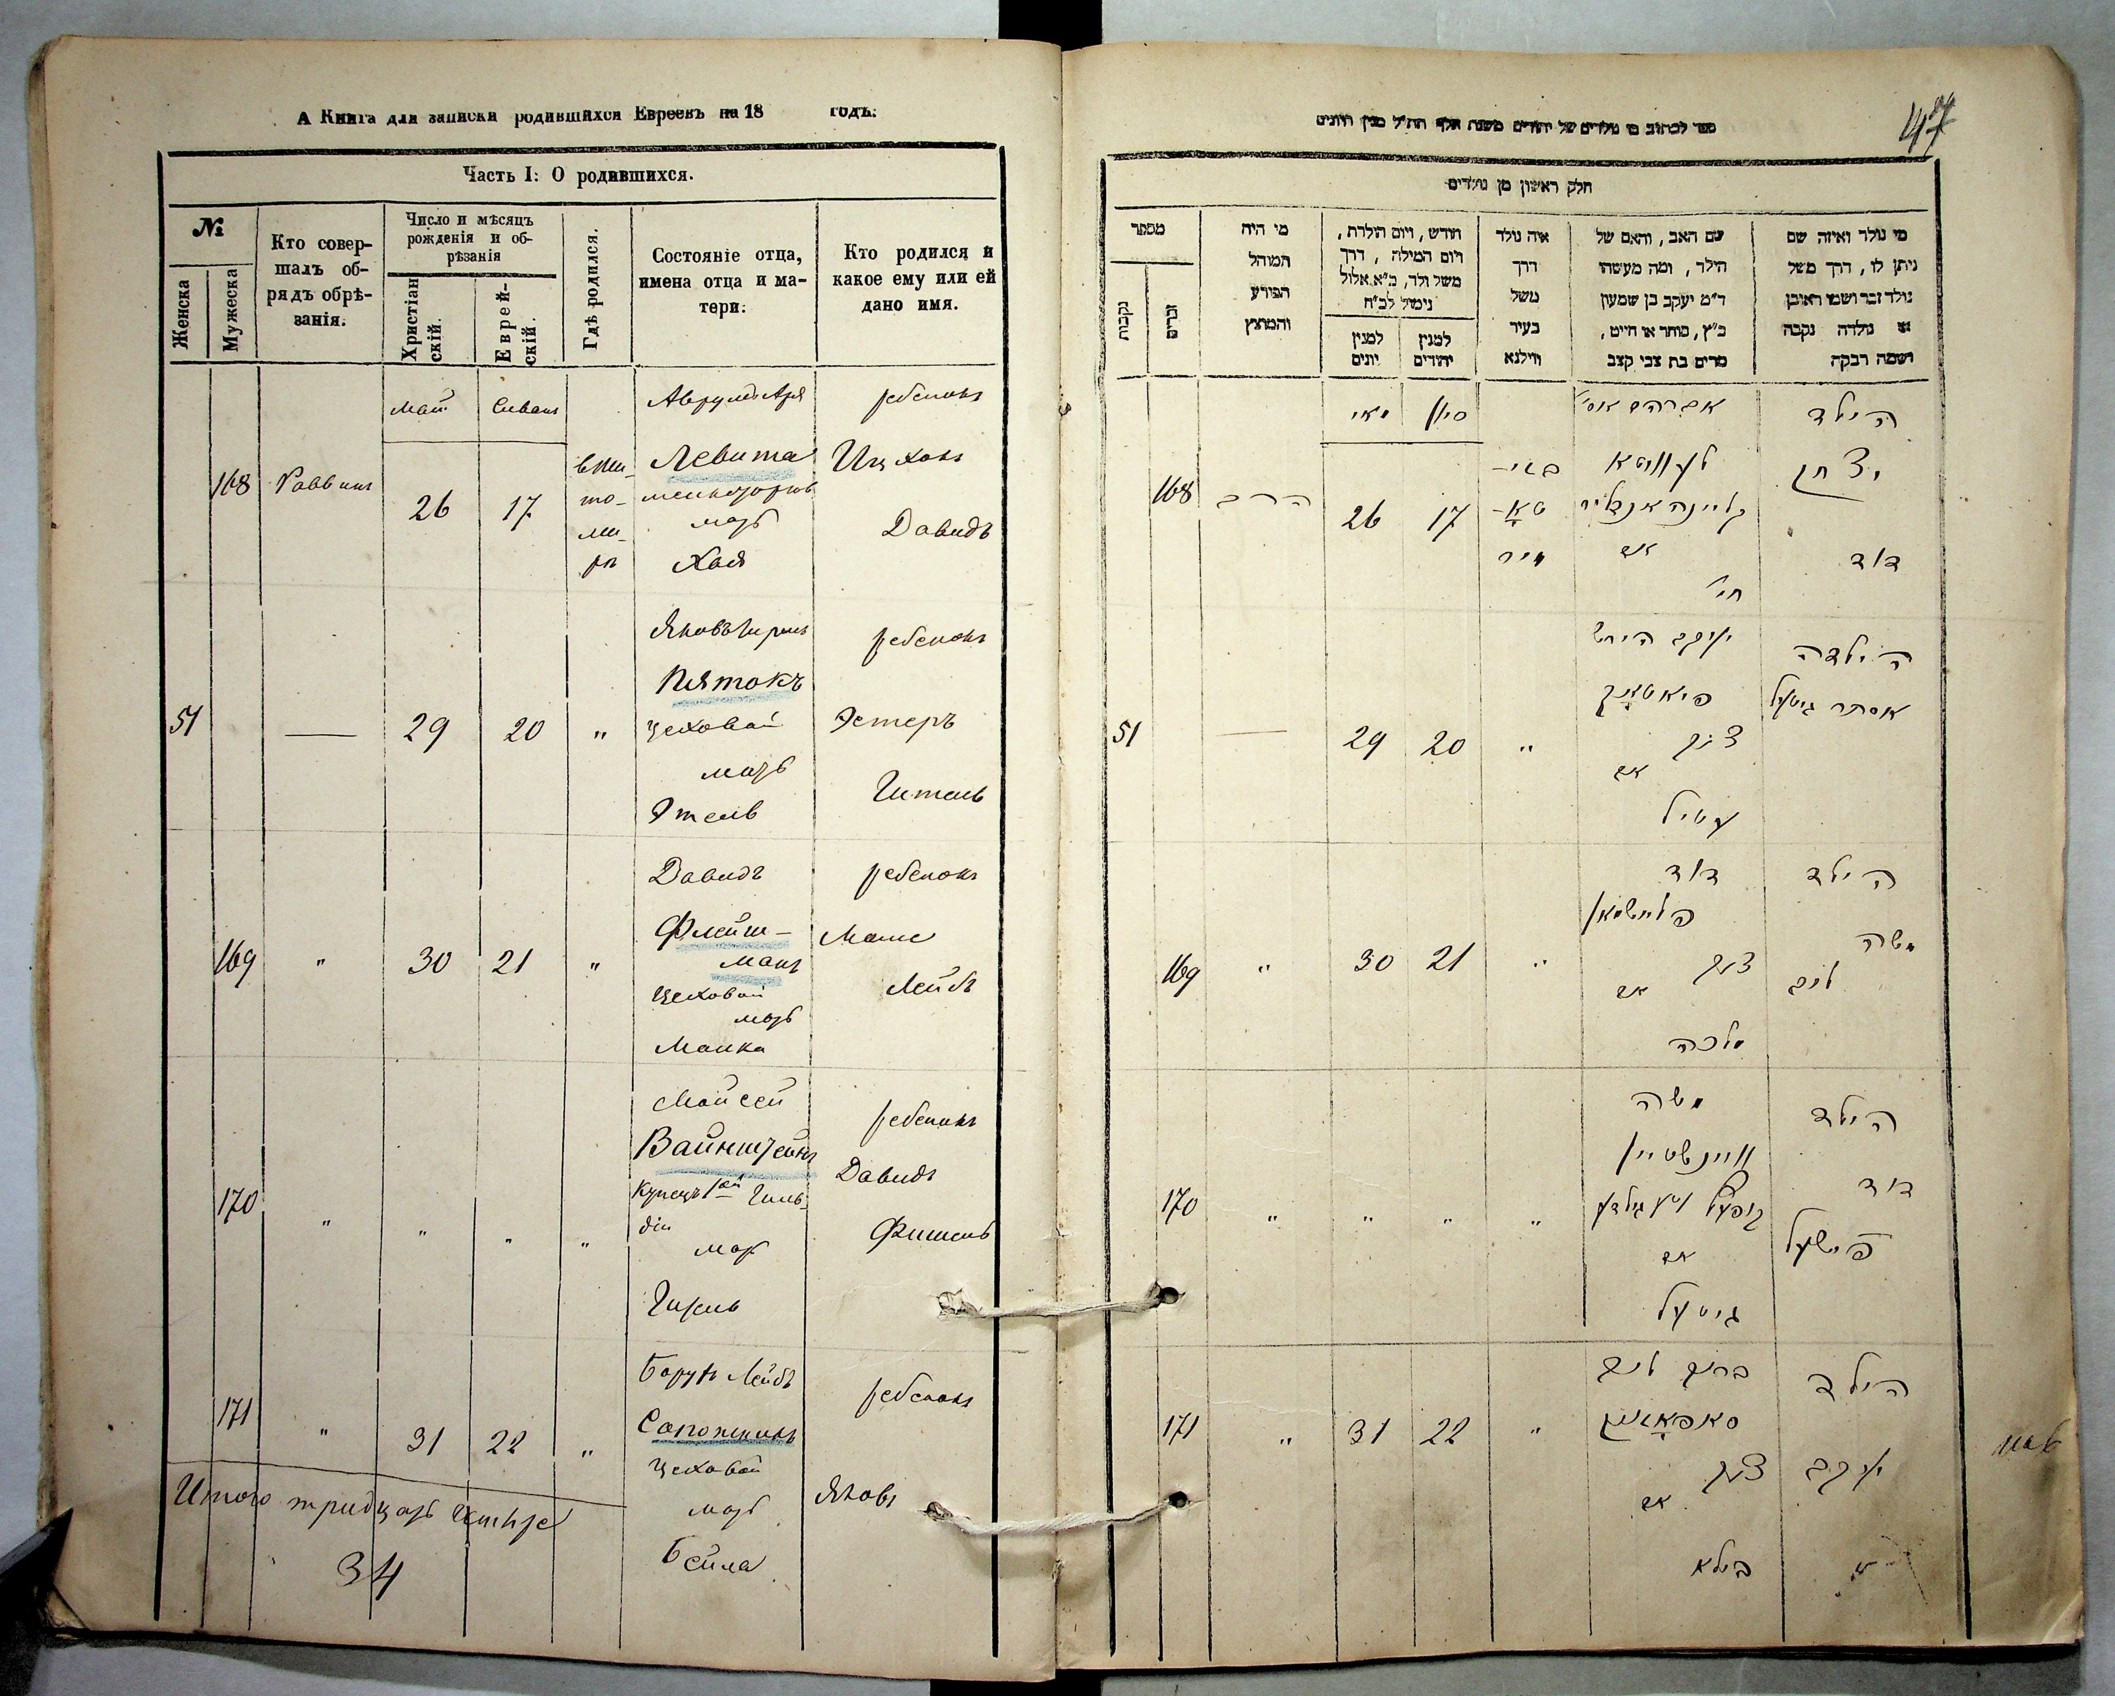 А Книга для записки родившихся Евреевъ на 18 годъ.
Часть I: О родившихся.
№
Женска
Мужеска
Кто совер-
шалъ об-
рядъ обрѣ-
занія.
Число и мѣсяцъ
рожденія и об-
рѣзанія
Христіан
скій.
Еврей-
скій.
Гдѣ родился.
Состояніе отца,
имена отца и ма-
тери.
Кто родился и
какое ему или ей
дано имя.
Май
Сиванъ
168
Раввинъ
26
17
в Жи-
то-
ми-
рѣ
Аврумъ Аря
Левита
мать
Хая
ребенокъ
Ицхокъ
Давидъ
51
29
20
"
Яковъ Гершъ
Пятокъ
Цеховой
мать
Этель
ребенокъ
Эстеръ
Гитель
169
"
30
21
"
Давидъ
Флейш-
манъ
Цеховой
мать
Малка
ребенокъ
Моше
Лейбъ
170
"
"
"
"
Мойсей
Вайнштейнъ
Купецъ 1ой Гиль-
діи
мать
ребенокъ
Давидъ
Фишель
171
"
31
22
"
Борухъ Лейбъ
Сапожникъ
Цеховой
мать
Бейла
ребенокъ
Яковъ
Итого тридцать четыре
34
47
ספר לכתוב מי נולדים של יהודים משנת אלף תת״ל מנין יוונים
חלק ראשון מן נולדים
מספר
נקבות
זכרים
מי היה
המוהל
הפורע
והמוצץ
חודש, ויום הולדת,
ויום המילה, דרך
משל ולד, כ״א אלול
נימול לכ״ח
למנין
יונים
למנין
יהודים
איה נולד
דרך
משל
בעיר
ווילנא
שם האב, והאם של
הילד, ומה מעשהו
ד״מ יעקב בן שמעון
כ״ץ, סוחר או חייט,
מרים בת צבי קצב
מי נולד ואיזה שם
ניתן לו, דרך משל
נולד זכר ושמו ראובן
או נולדה נקבה
ושמה רבקה
מאי
סיון
168
הרב
26
17
זאי-
טאָ-
מיר
לעוויטא
אם
חי׳
הילד
יצחק
דוד
51
29
20
"
יעקב הירש
פיאטאָק
צעך
אם
עטיל
הילדה
אסתר גיטעל
169
"
30
21
"
דוד
פליישמאן
צעך
אם
מלכה
הילד
משה
ליב
170
"
"
"
"
משה
וויינשטיין
אם
גיטעל
הילד
דוד
פישעל
171
"
31
22
"
ברוך ליב
צעך
אם
ביילא
הילד
יעקב